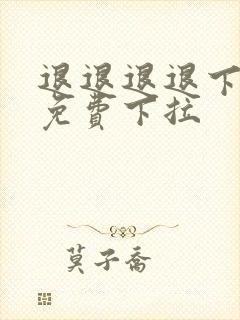 退退退退下
免費下拉
莫子喬